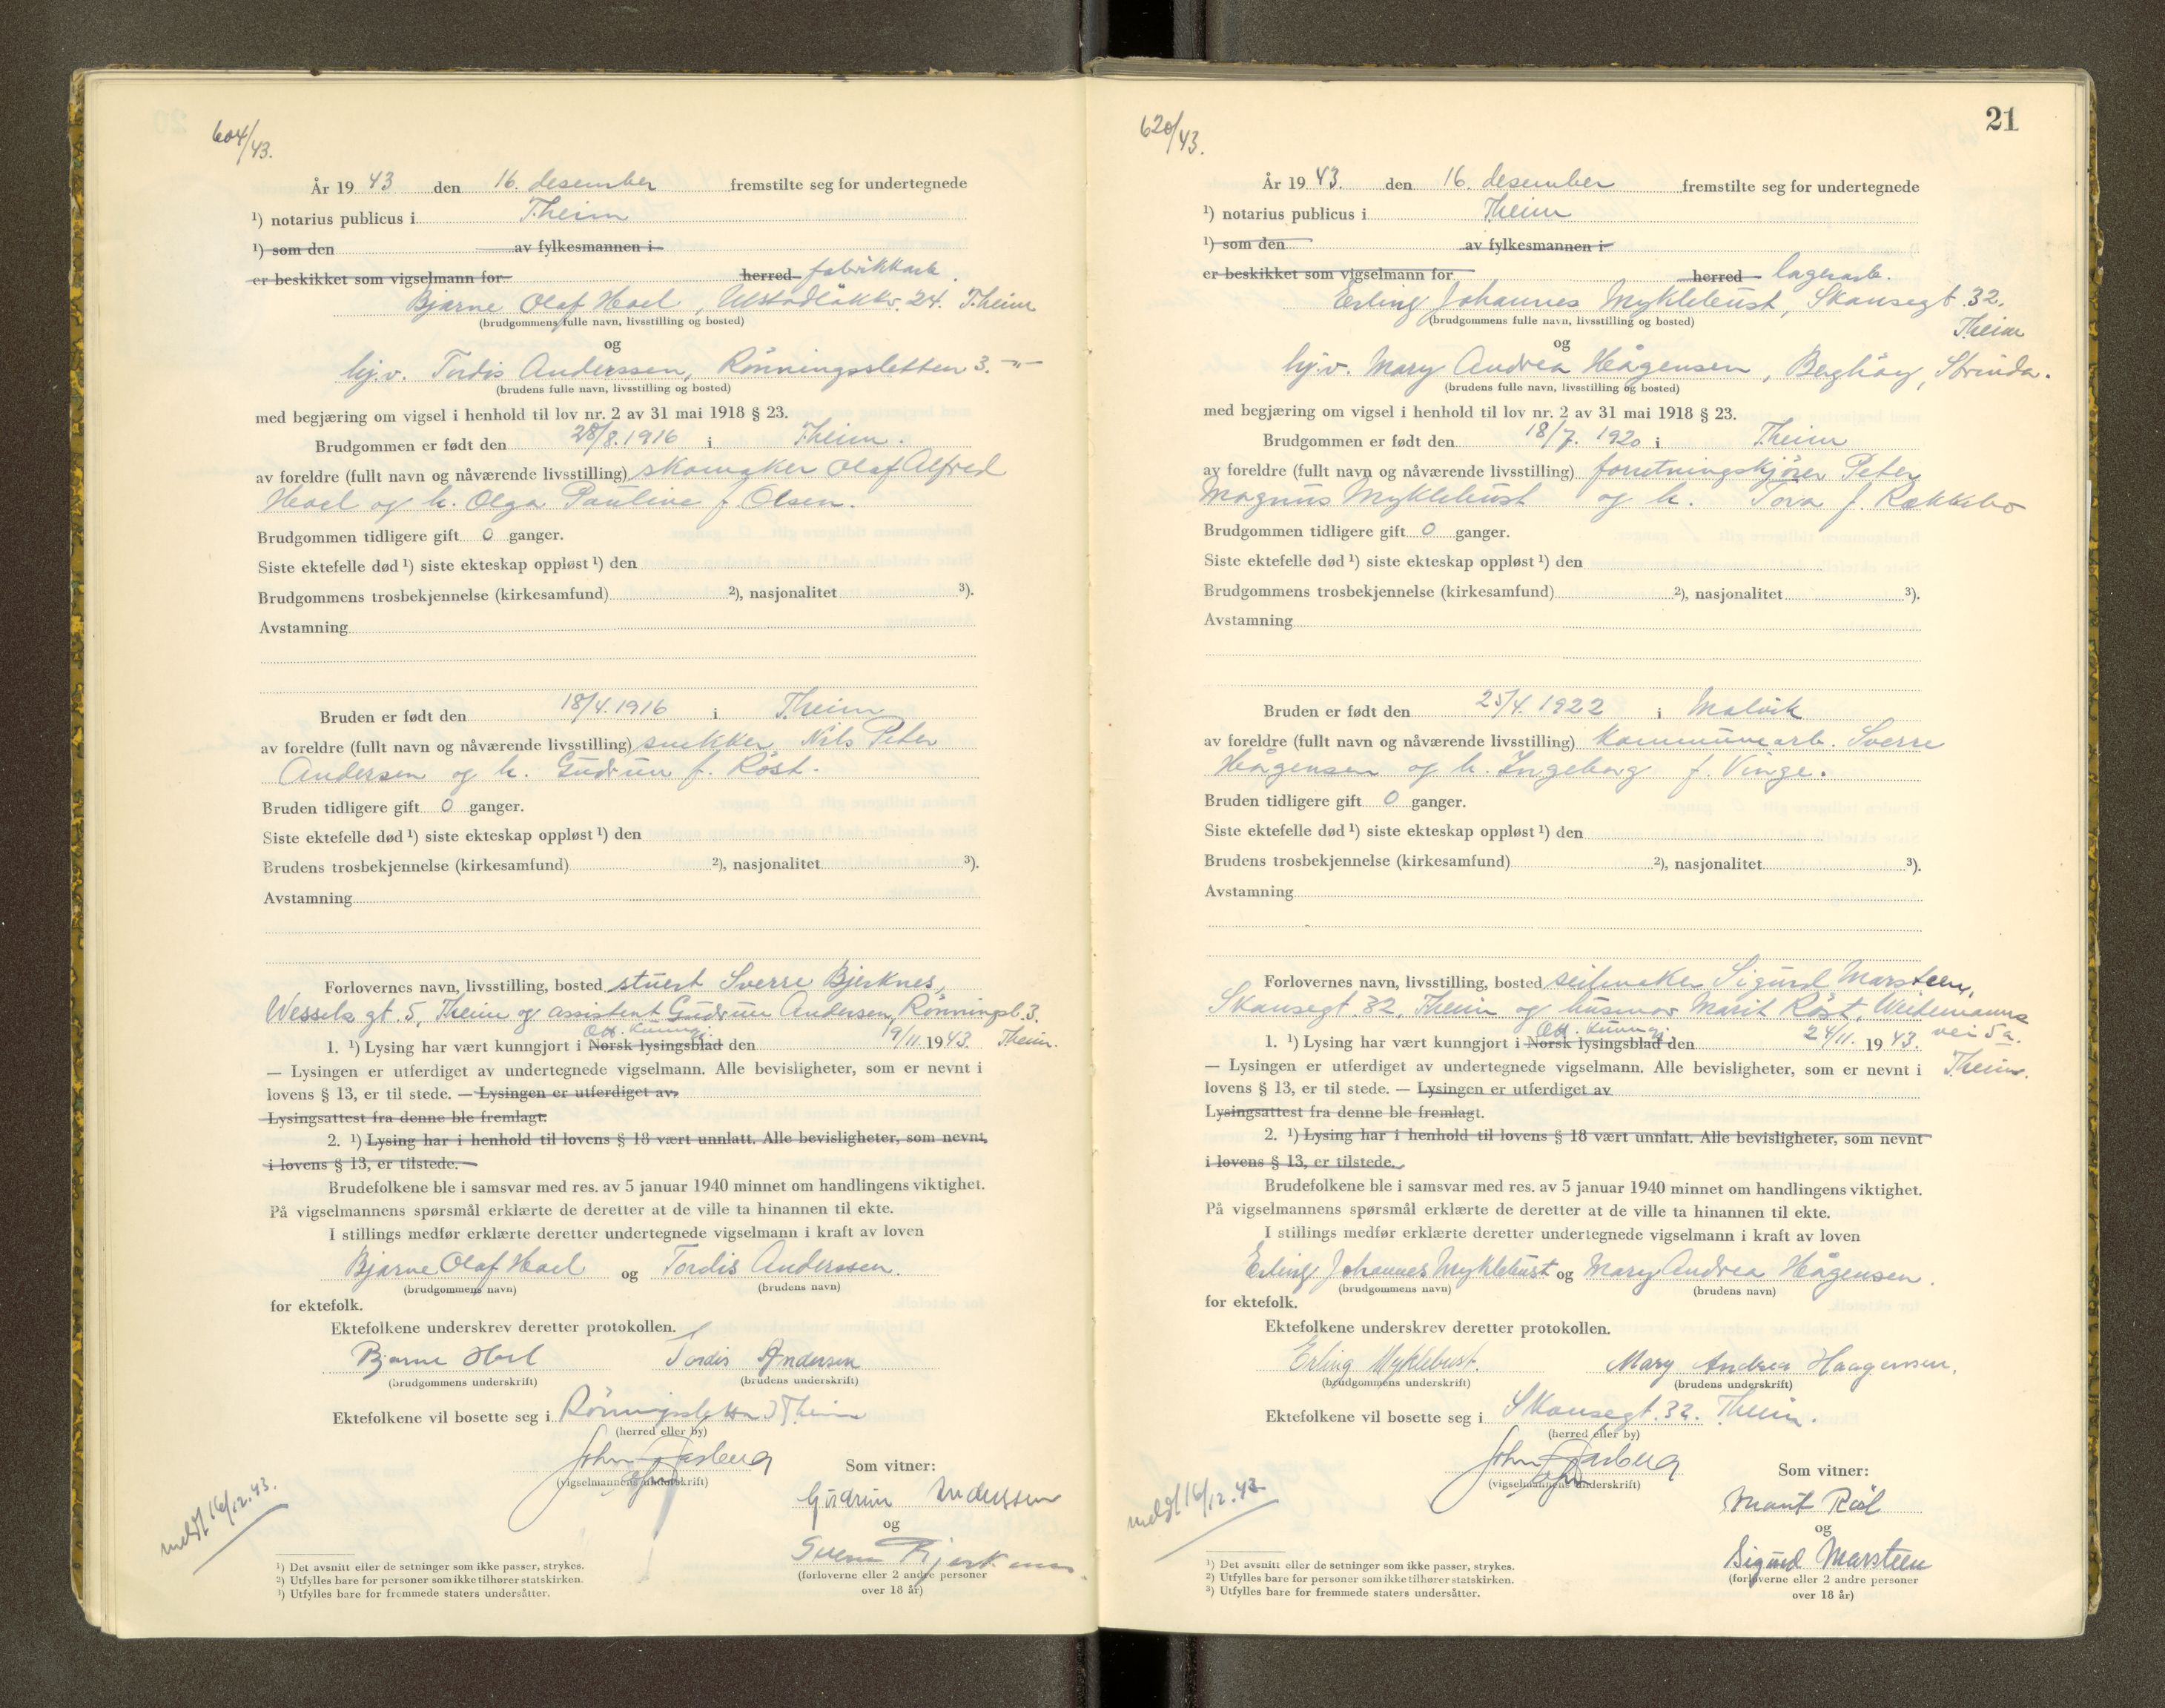 604/43.
År 19 43 den 16. desember fremstilte seg for undertegnede
¹) notarius publicus i T.heim
¹) som den av fylkesmannen i
er beskikket som vigselmann for herred fabrikkarb.
Bjarne Olaf Hoel, 24. T.heim
(brudgommens fulle navn, livsstilling og bosted)
og
hj.v. Tordis Anderssen, Rönningssletten 3. -"-
(brudens fulle navn, livsstilling og bosted)
med begjæring om vigsel i henhold til lov nr. 2 av 31 mai 1918 § 23.
Brudgommen er født den 28/8.1916 i T.heim.
av foreldre (fullt navn og nåværende livsstilling) skomaker Olaf Alfred
Hoel og h. Olga Pauline f. Olsen.
Brudgommen tidligere gift 0 ganger.
Siste ektefelle død ¹) siste ekteskap oppløst ¹) den
Brudgommens trosbekjennelse (kirkesamfund) ²), nasjonalitet ³).
Avstamning
Bruden er født den 18/4.1916 i T.heim
av foreldre (fullt navn og nåværende livsstilling) snekker Nils Peter
Andersen og h. Gudrun f. Röst.
Bruden tidligere gift 0 ganger.
Siste ektefelle død ¹) siste ekteskap oppløst ¹) den
Brudens trosbekjennelse (kirkesamfund) ²), nasjonalitet ³).
Avstamning
Forlovernes navn, livsstilling, bosted stuert Sverre Bjerknes,
Wessels gt. 5, T.heim og assistent Gudrun Andersen, Rönningsl. 3.
Off. kunngj. T.heim.
1. ¹) Lysing har vært kunngjort i Norsk lysingsblad den 19/11. 19 43.
— Lysingen er utferdiget av undertegnede vigselmann. Alle bevisligheter, som er nevnt i
lovens § 13, er til stede. — Lysingen er utferdiget av
Lysingsattest fra denne ble fremlagt.
2. ¹) Lysing har i henhold til lovens § 18 vært unnlatt. Alle bevisligheter, som nevnt
i lovens § 13, er tilstede.
Brudefolkene ble i samsvar med res. av 5 januar 1940 minnet om handlingens viktighet.
På vigselmannens spørsmål erklærte de deretter at de ville ta hinannen til ekte.
I stillings medfør erklærte deretter undertegnede vigselmann i kraft av loven
Bjarne Olaf Hoel og Tordis Anderssen.
(brudgommens navn) (brudens navn)
for ektefolk.
Ektefolkene underskrev deretter protokollen.
Bjarne Hoel Tordis Andersen
(brudgommens underskrift) (brudens underskrift)
Ektefolkene vil bosette seg i Rönningsletten 3 T.heim
(herred eller by)
John Aasberg
(vigselmannens underskrift)
Som vitner:
Gudrun Anderssen
og
Sverre Bjerknes.
(forloverne eller 2 andre personer
over 18 år)
meldt 16/12.43.
¹) Det avsnitt eller de setninger som ikke passer, strykes.
²) Utfylles bare for personer som ikke tilhører statskirken.
³) Utfylles bare for fremmede staters undersåtter.
21
620/43.
År 19 43. den 16. desember fremstilte seg for undertegnede
¹) notarius publicus i T.heim
¹) som den av fylkesmannen i
er beskikket som vigselmann for herred lagerarb.
Erling Johannes Myklebust, Skansegt. 32,
(brudgommens fulle navn, livsstilling og bosted) T.heim
og
hj.v. Mary Andrea Hågensen, Berghöy, Strinda.
(brudens fulle navn, livsstilling og bosted)
med begjæring om vigsel i henhold til lov nr. 2 av 31 mai 1918 § 23.
Brudgommen er født den 18/7. 1920 i T.heim
av foreldre (fullt navn og nåværende livsstilling) forretningskjörer Peter
Magnus Myklebust og h. Tora f. Rekkebo
Brudgommen tidligere gift 0 ganger.
Siste ektefelle død ¹) siste ekteskap oppløst ¹) den
Brudgommens trosbekjennelse (kirkesamfund) ²), nasjonalitet ³).
Avstamning
Bruden er født den 25/4. 1922 i Malvik
av foreldre (fullt navn og nåværende livsstilling) kommunearb. Sverre
Hågensen og h. Ingeborg f. Vinge.
Bruden tidligere gift 0 ganger.
Siste ektefelle død ¹) siste ekteskap oppløst ¹) den
Brudens trosbekjennelse (kirkesamfund) ²), nasjonalitet ³).
Avstamning
Forlovernes navn, livsstilling, bosted seilmaker Sigurd Marsteen,
Skansegt. 32, T.heim og husmor Marit Röst, Weidemanns
Off. kunngj. vei 5a.
1. ¹) Lysing har vært kunngjort i Norsk lysingsblad den 24/11. 19 43.
— Lysingen er utferdiget av undertegnede vigselmann. Alle bevisligheter, som er nevnt i T.heim.
lovens § 13, er til stede. — Lysingen er utferdiget av
Lysingsattest fra denne ble fremlagt.
2. ¹) Lysing har i henhold til lovens § 18 vært unnlatt. Alle bevisligheter, som nevnt
i lovens § 13, er tilstede.
Brudefolkene ble i samsvar med res. av 5 januar 1940 minnet om handlingens viktighet.
På vigselmannens spørsmål erklærte de deretter at de ville ta hinannen til ekte.
I stillings medfør erklærte deretter undertegnede vigselmann i kraft av loven
Erling Johannes Myklebust og Mary Andrea Hågensen.
(brudgommens navn) (brudens navn)
for ektefolk.
Ektefolkene underskrev deretter protokollen.
Erling Myklebust. Mary Andrea Haagensen.
(brudgommens underskrift) (brudens underskrift)
Ektefolkene vil bosette seg i Skansegt. 32. T.heim.
(herred eller by)
John Aasberg
(vigselmannens underskrift)
Som vitner:
Marit Röst
og
Sigurd Marsteen
(forloverne eller 2 andre personer
over 18 år)
meldt 16/12.43
¹) Det avsnitt eller de setninger som ikke passer, strykes.
²) Utfylles bare for personer som ikke tilhører statskirken.
³) Utfylles bare for fremmede staters undersåtter.